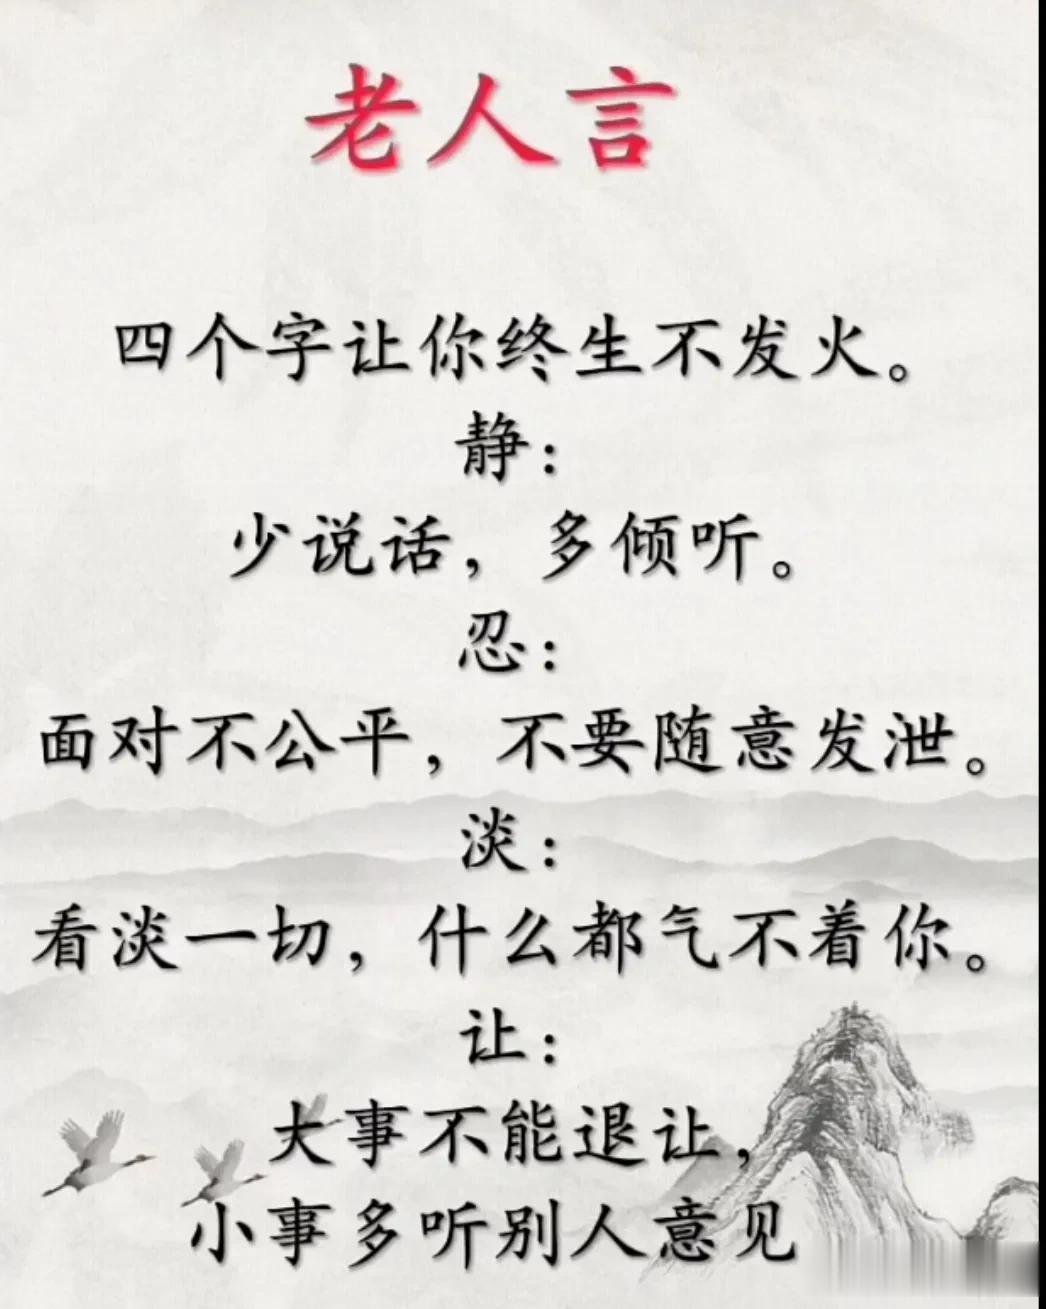 老人言
四个字让你终生不发火。
静：
少说话，多倾听。
忍：
面对不公平，不要随意发泄。
淡：
看淡一切，什么都气不着你。
让：
大事不能退让，
小事多听别人意见